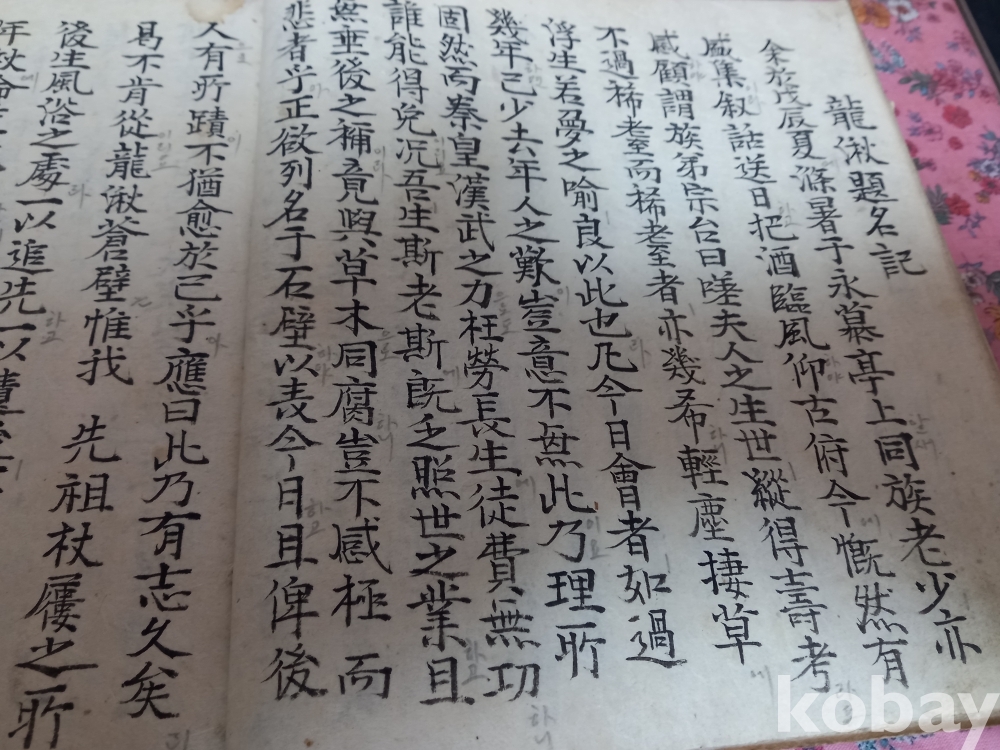 龍湫題名記
余於戊辰夏滌暑于永慕亭上同族老少亦
咸集叙話送日把酒臨風仰古俯今慨然有
感顧謂族弟宗台曰嗟夫人之生世縱得壽考
不過稀耋而稀耋至者亦幾希輕塵捿草
浮生若夢之喻良以此也凡今日會者如過
幾年已少六年人之難豈意不無此乃理所
固然而秦皇漢武之力枉勞長生徒費無功
誰能得免况吾生斯老斯既乏照世之業且
無垂後之補竟與草木同腐豈不感極而
悲者乎正欲列名于石壁以表今日且俾後
人有所蹟不猶愈於已乎應曰此乃有志久矣
曷不肯從龍湫蒼壁惟我 先祖杖屨之所
後生風俗之處一以追先一以
kobay